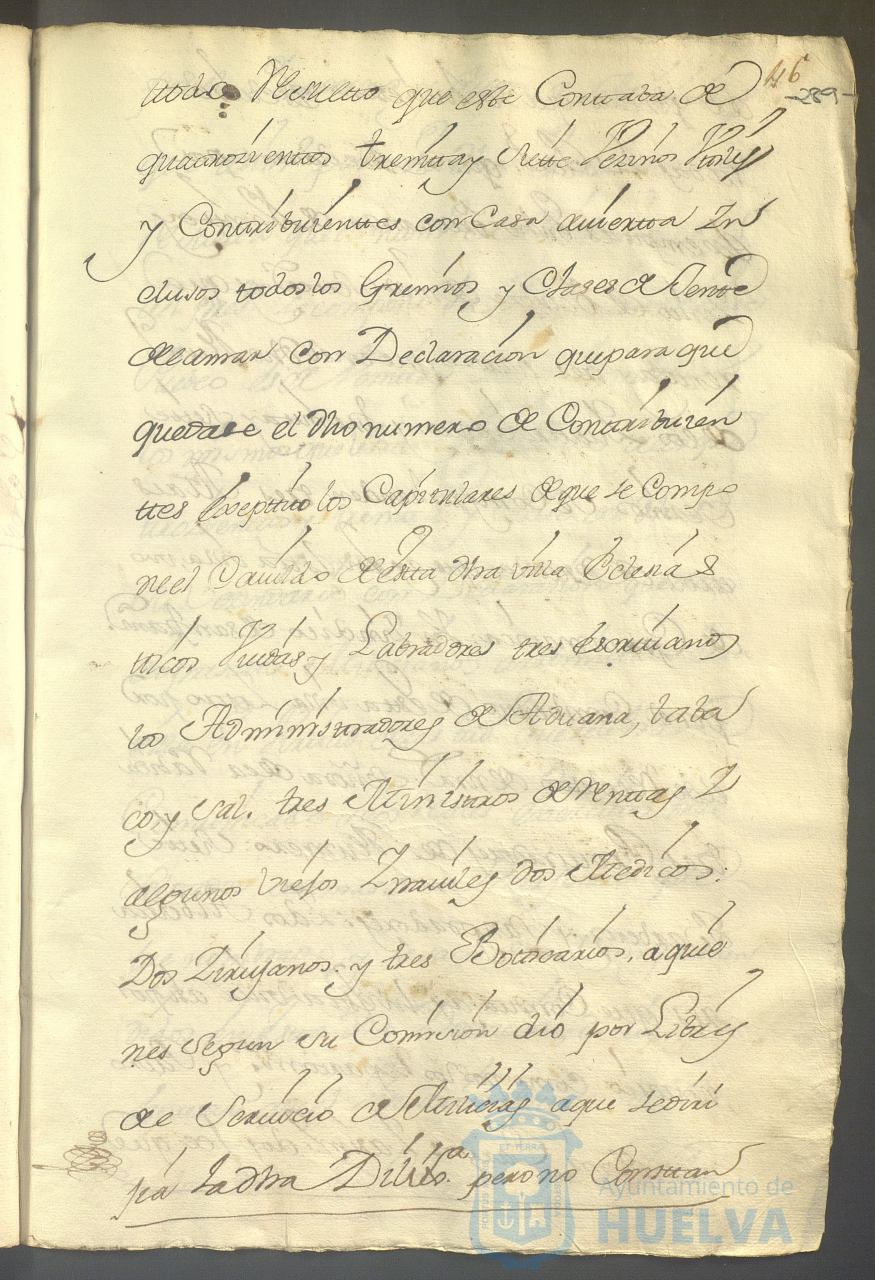 46
-289-
ttodo Resultto que este Conttaba de
quattrozienttos treintta y siete Vezinos Uttiles
y Conttribuienttes con Casa auiertta In
clusos todos los Gremios y Clases de Jente
de la mar con Declarazion que para que
quedase el dho numero de Conttribuien
ttes exepttuo los Capitulares de que se Compo
ne el Cauildo de esta dha villa Eclesias
tticos Viudas y Labradores tres Escriuanos
los Administtradores de Aduana, taba
co y sal. tres Ministros de Renttas I
algunos Viejos Inautiles dos Medicos.
Dos Zirujanos. y tres Botticarios, a quie
nes segun su Comision dio por Libres
de Seruicio de Milicias a que se diri
jia la dha Dilixa. pero no Consttan
Ayuntamiento de
HUELVA